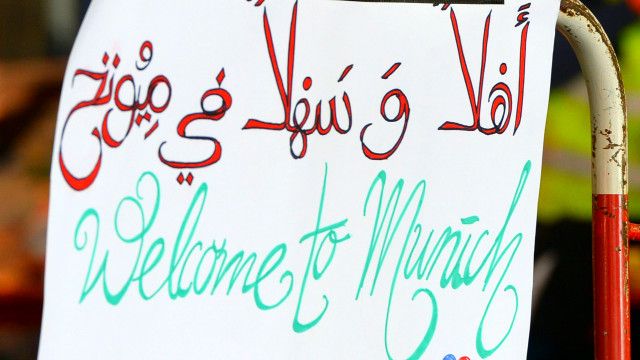 أَهلاً وَ سَهلاً في مِيُونخ
Welcome to Munich